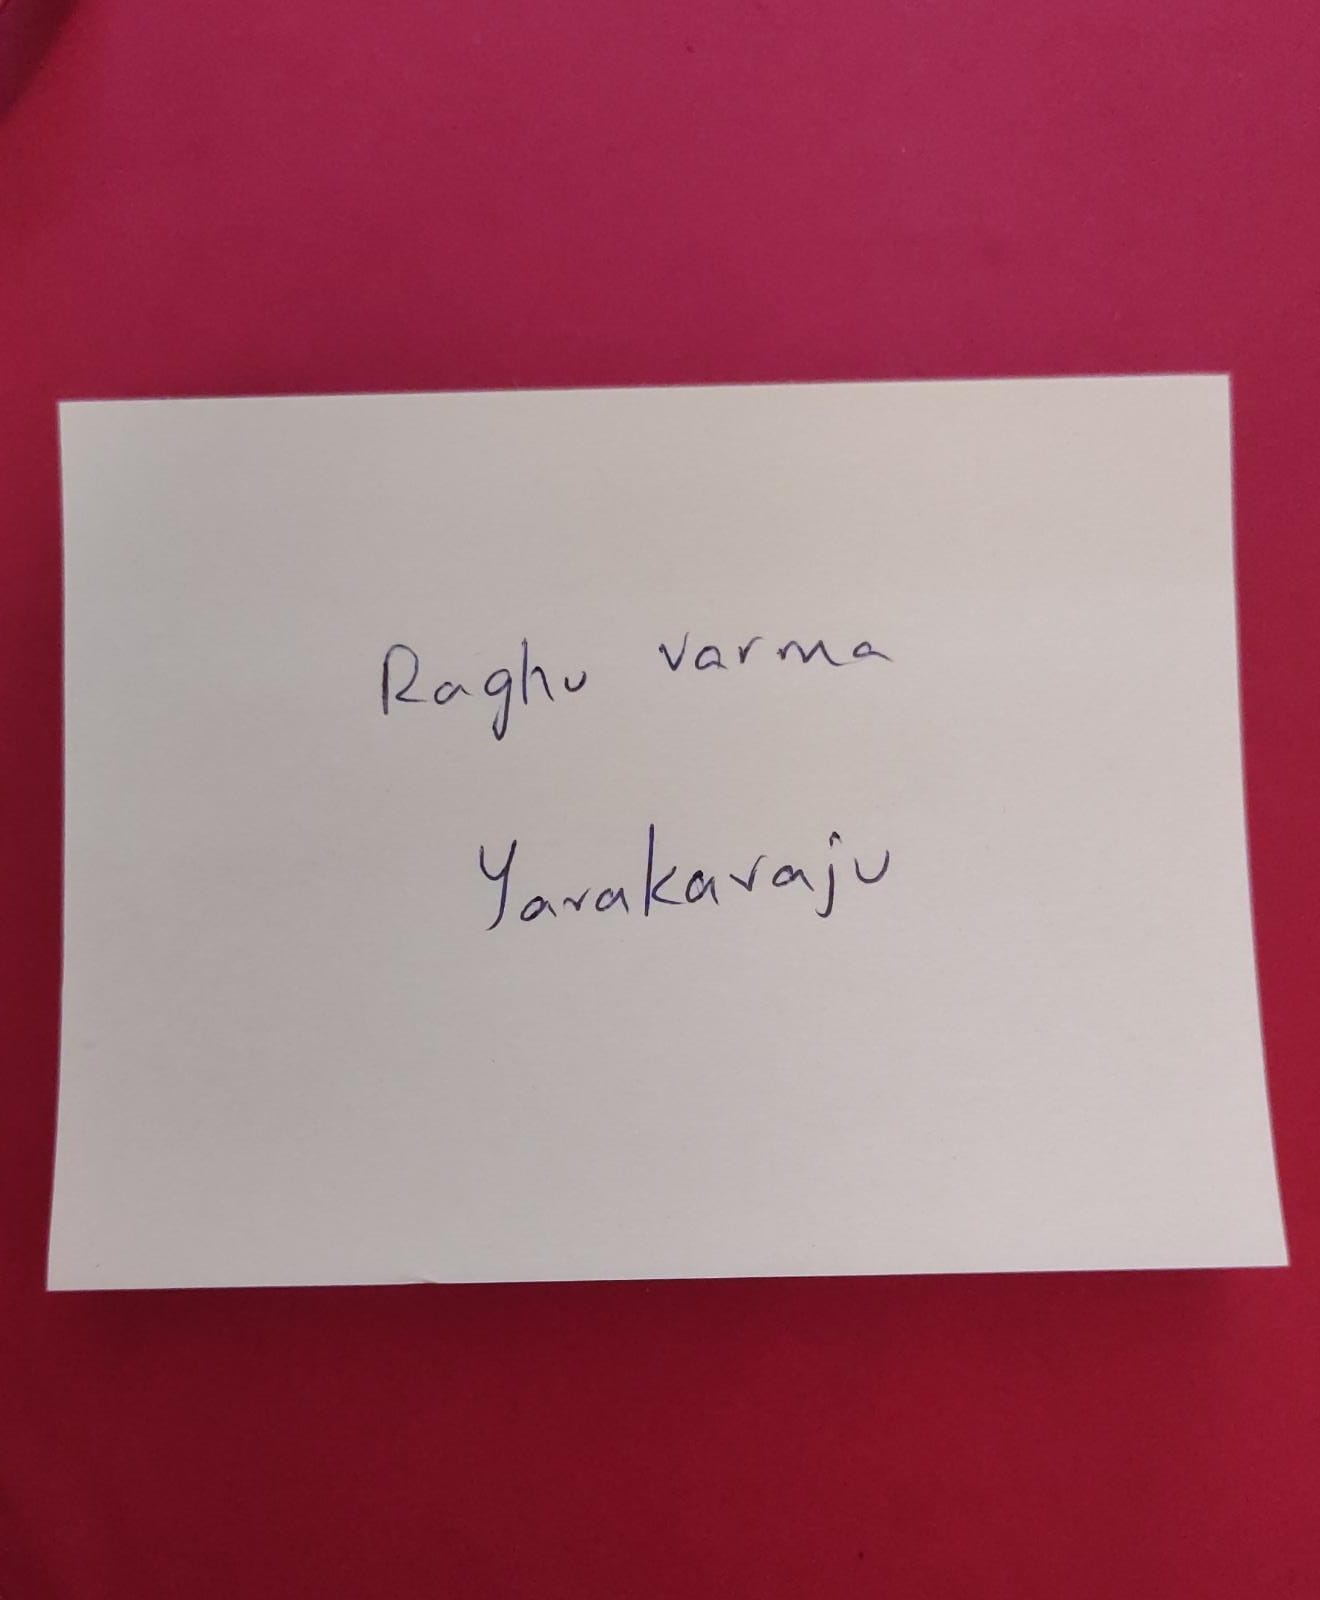 Raghu varma
Yarakaraju